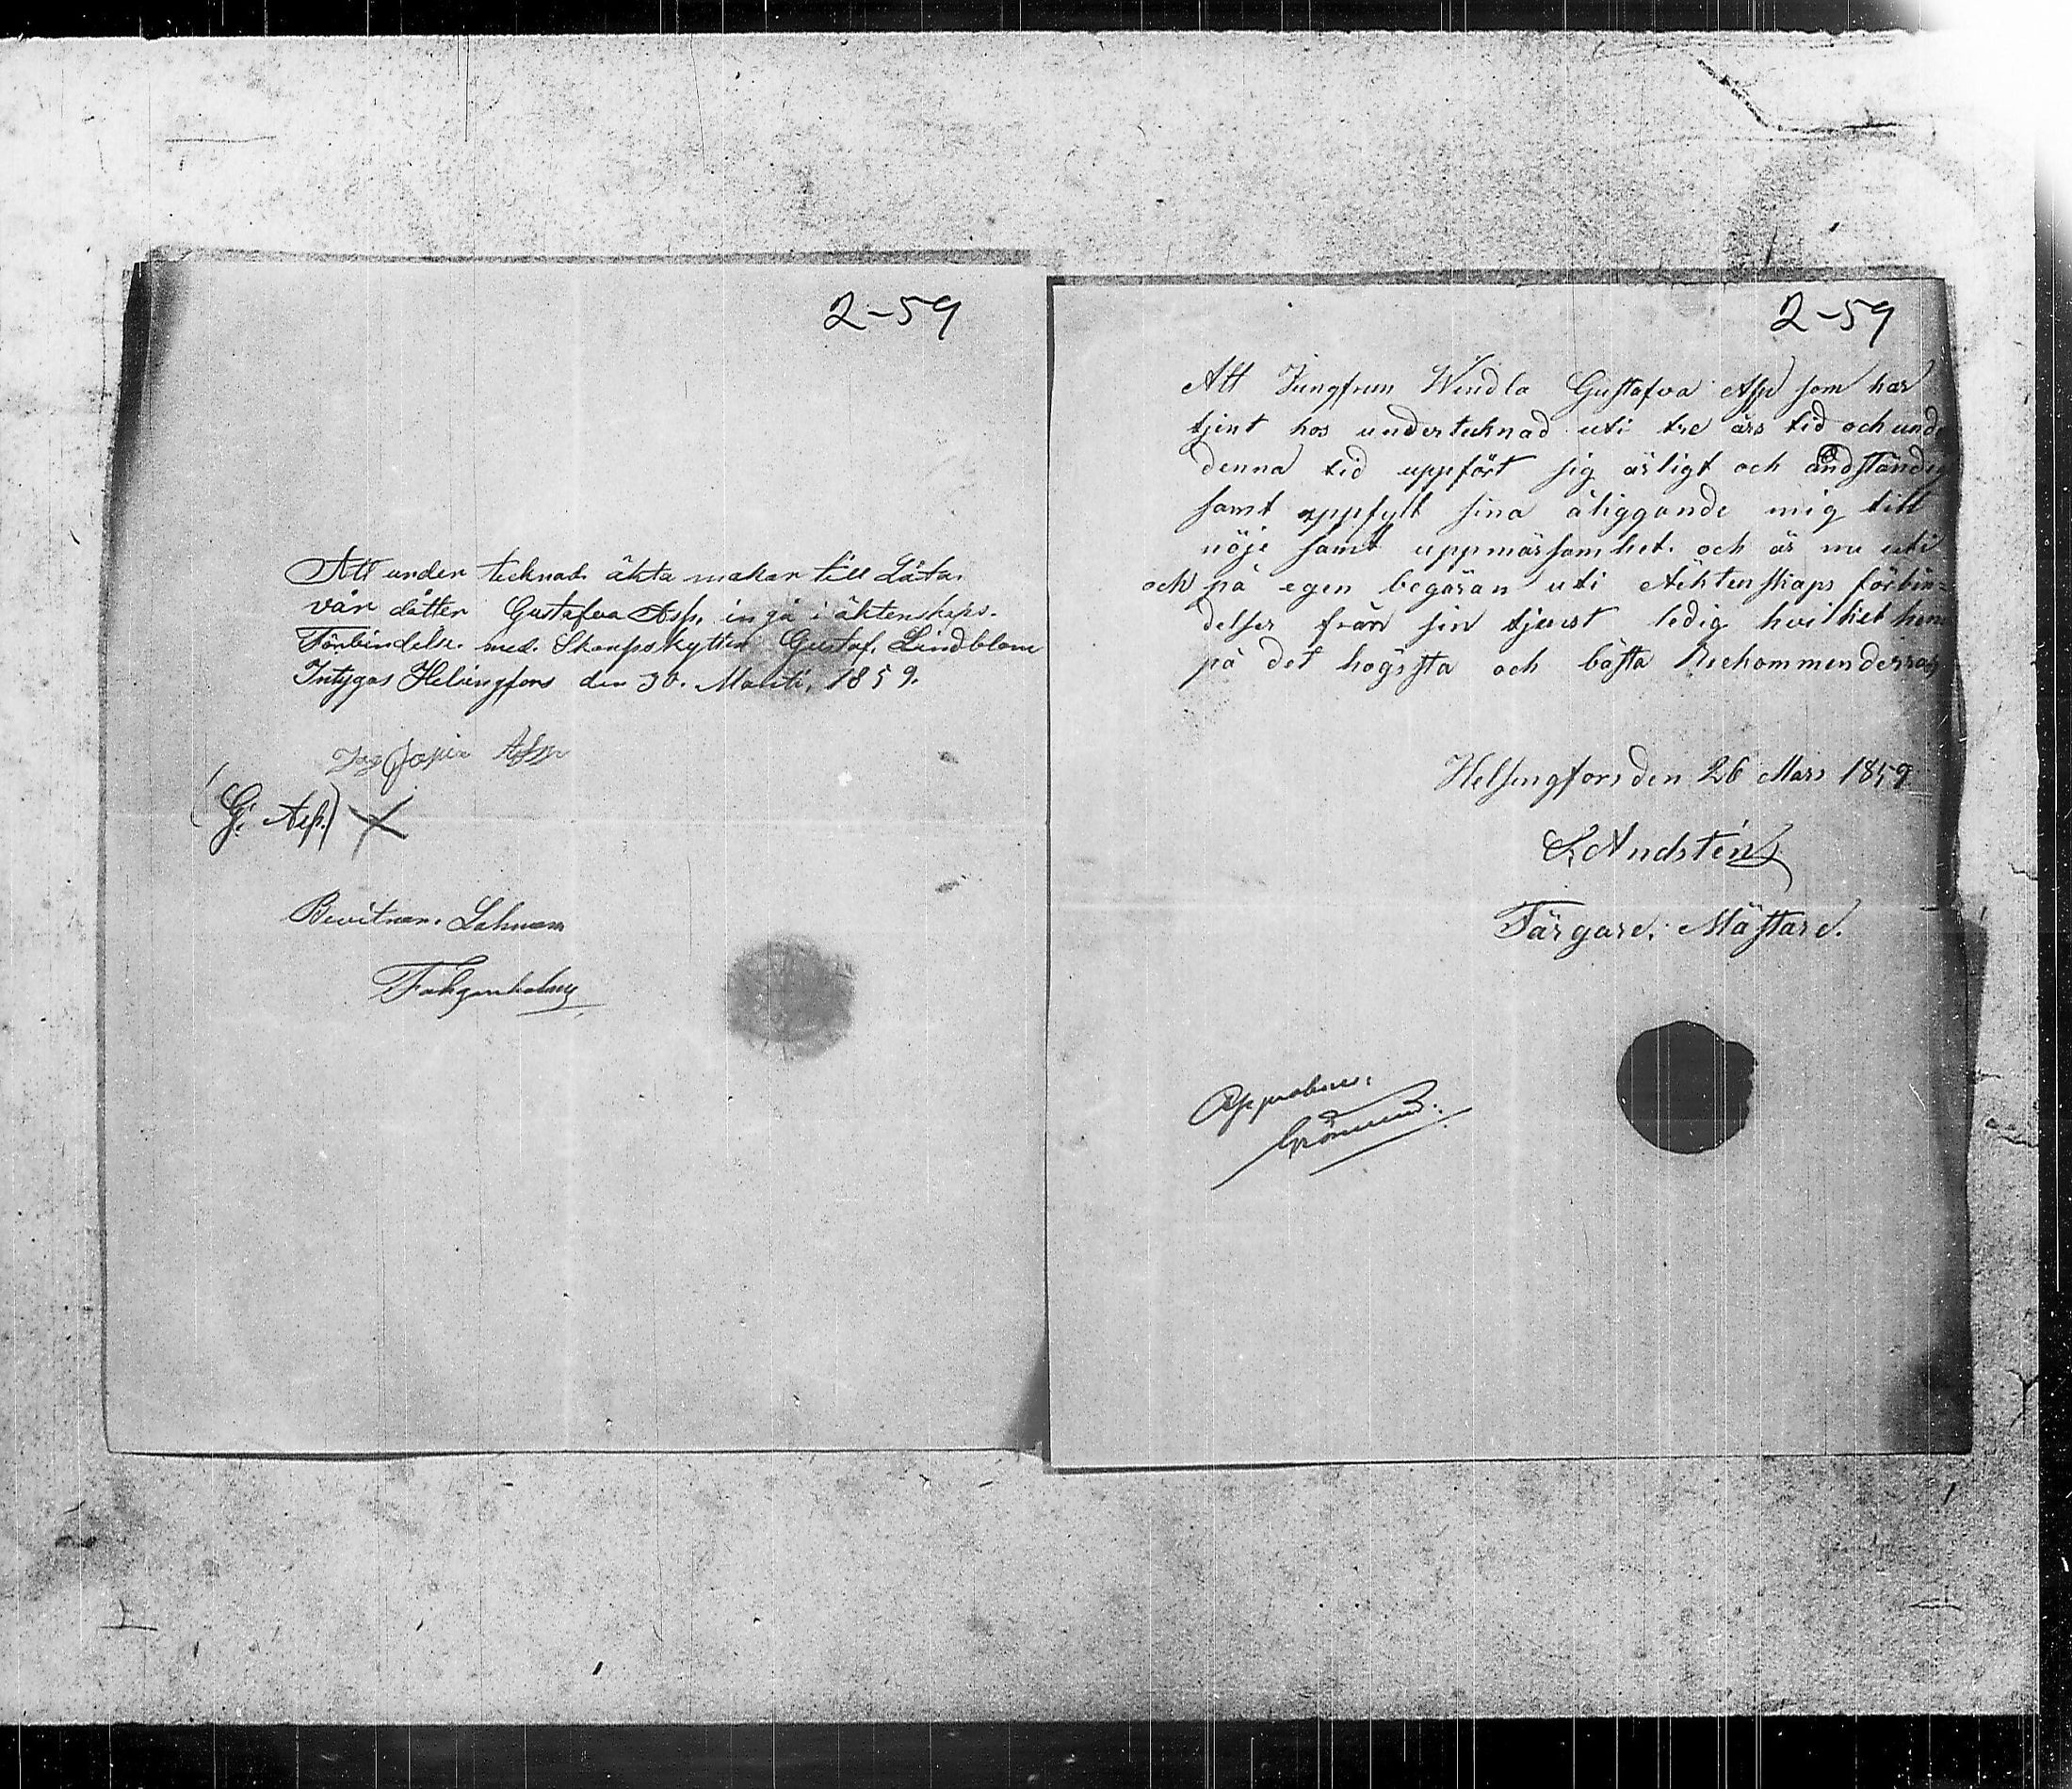 2-59
Att under tecknat äkta makar till Låta
vår dåtter Gustafva Asp, ingå i äktenskaps
Förbindelse med Skarpskytten Gustaf Lindblom
Intygas Helsingfors den 30. Martii, 1859.
Sofia Asp
(G. Asp.) X
Bewitnar
2-59
Att Jungfrun Wendla Gustafva Asp som har
tjent hos undertecknad uti tre års tid och unde
denna tid uppfört sig ärligt och andständig
samt uppfylt sina åliggande mig till
nöje samt uppmärsamhet och är nu uti
och på egen begäran uti Äktenskaps förbin=
delser från sin tjenst ledig hvilket hen
på det högssta och bästa Reckommenderas
Helsingfors den 26 Mars 1859
Andstén
Färgare Mästare.